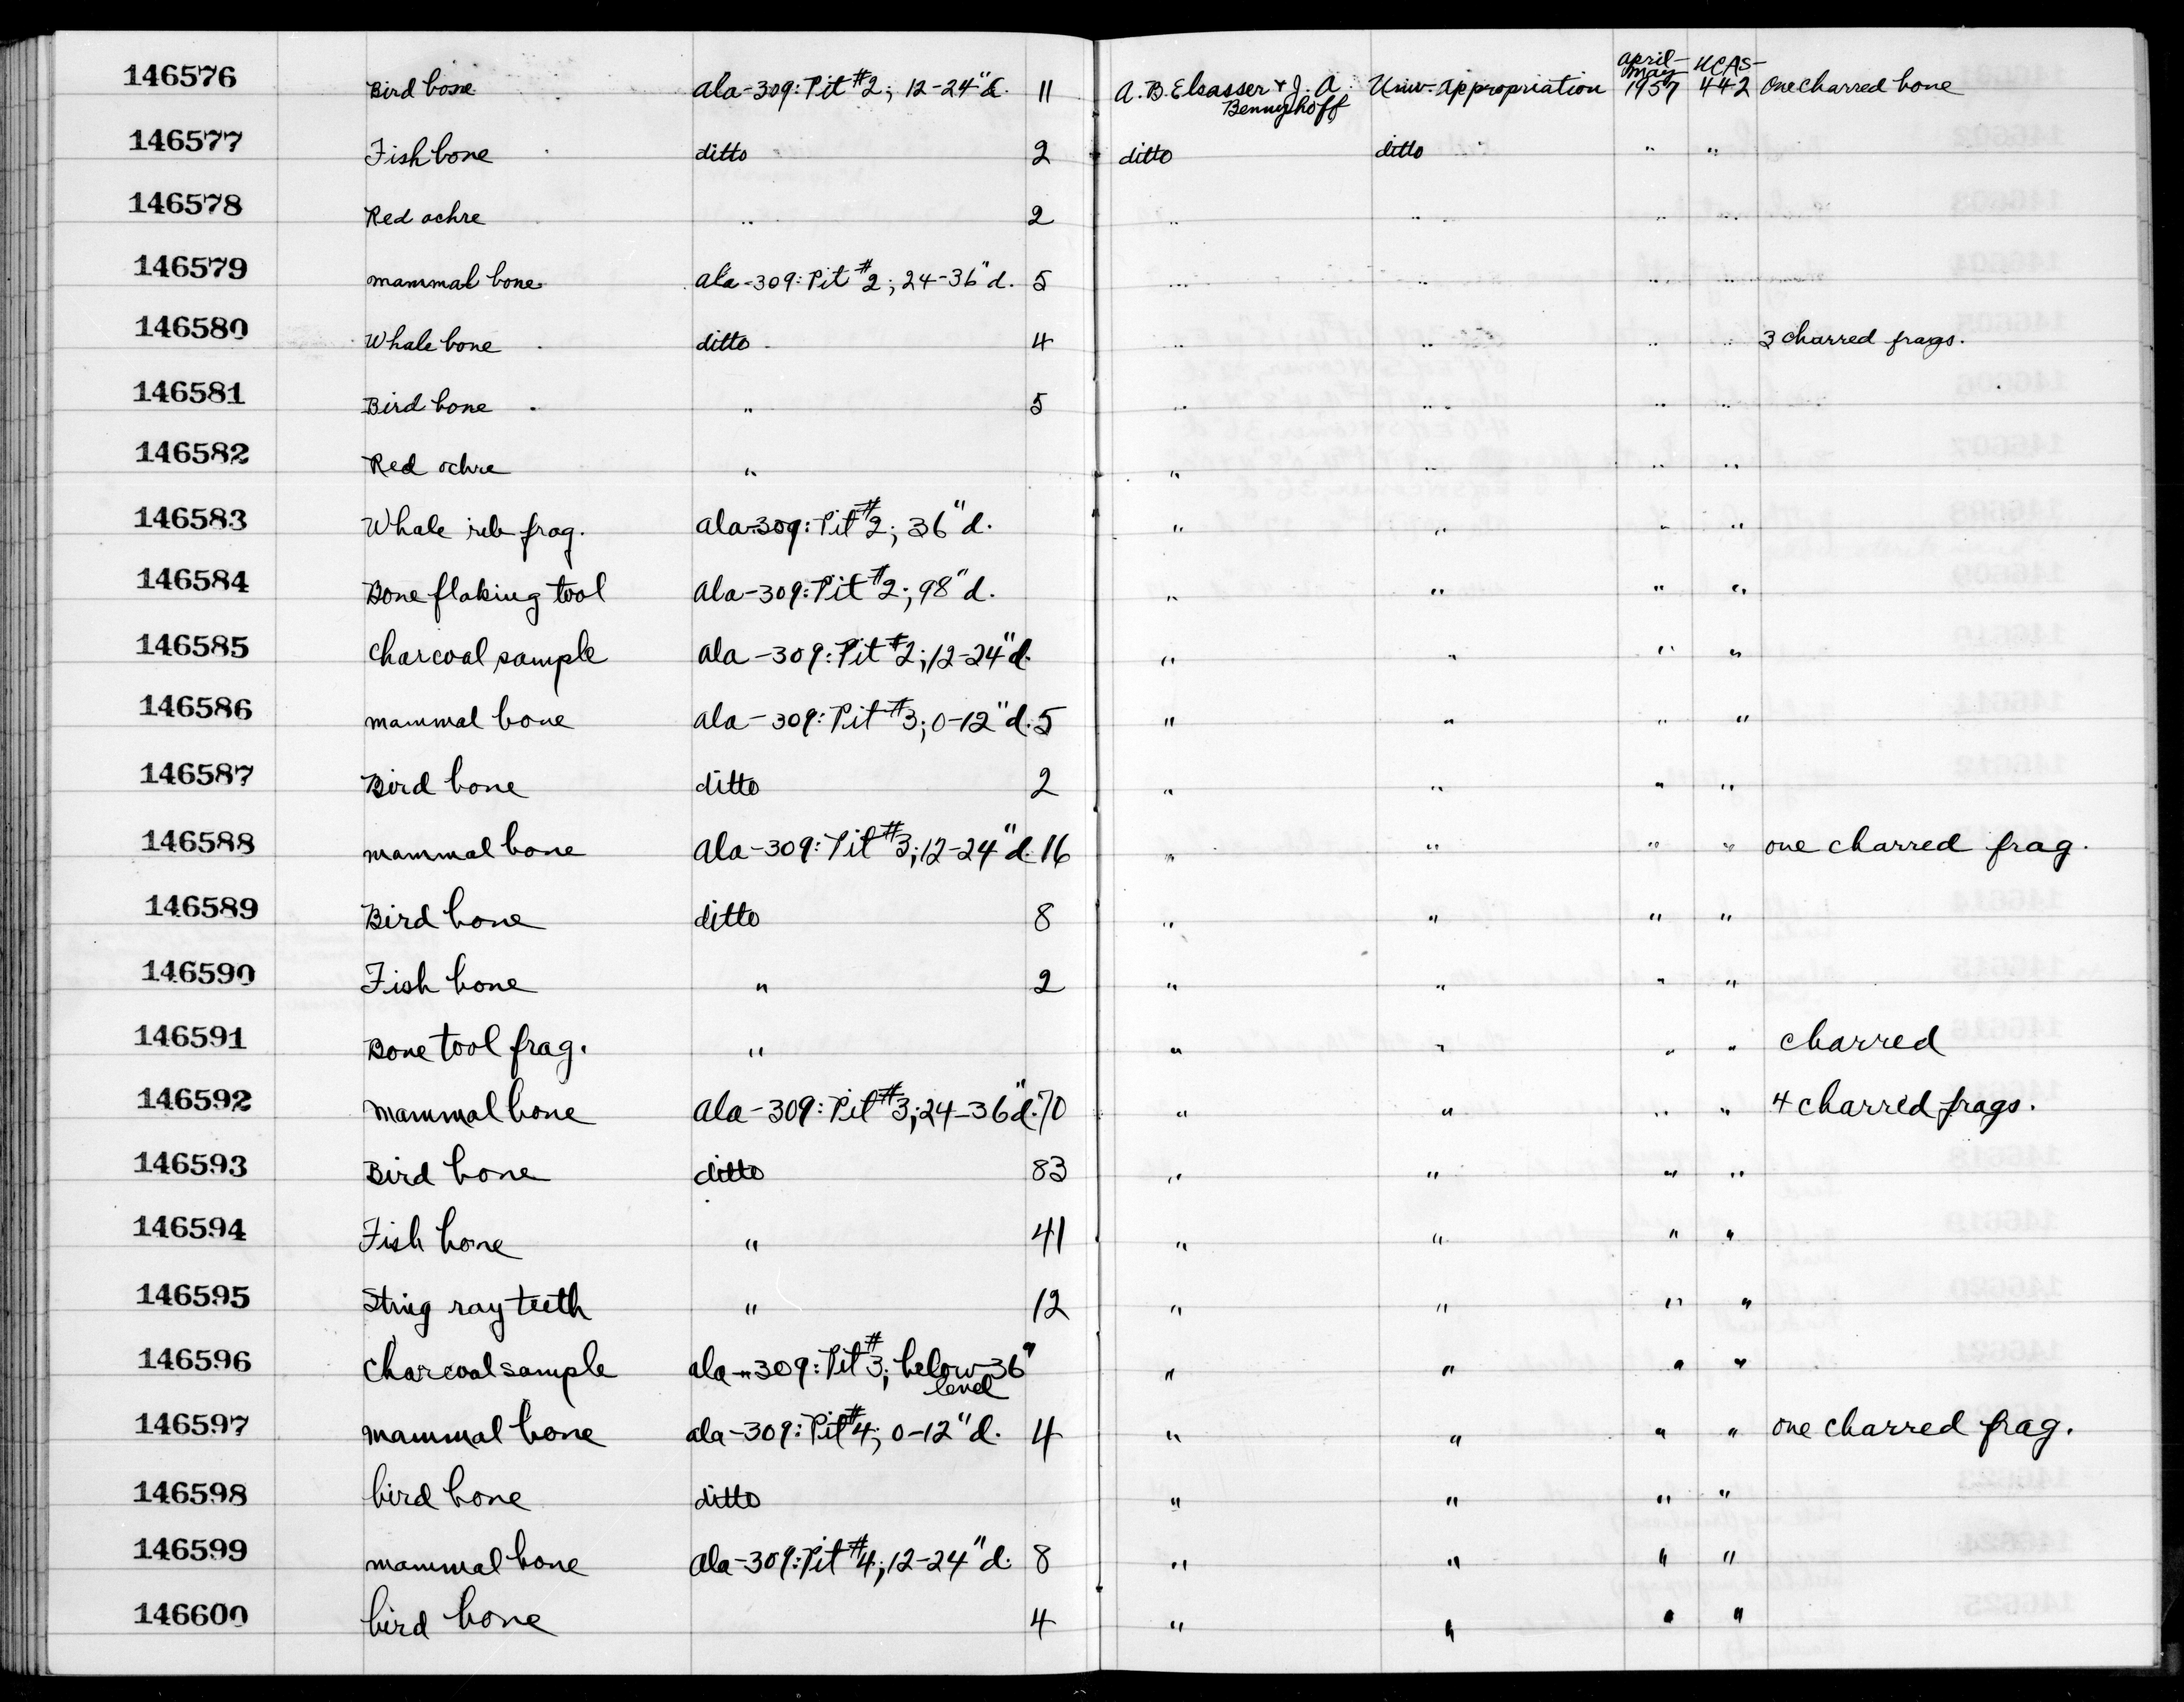 146576 Bird bone ala-309: Pit #2; 12-24"d. 11 A. B. Elsasser & J. A. Bennyhoff Univ. Appropriation April-May 1957 UCAS-442 One charred bone
146577 Fish bone ditto 2 ditto ditto " "
146578 Red ochre " 2 " " " "
146579 mammal bone ala-309: Pit #2; 24-36"d. 5 " " " "
146580 Whale bone ditto 4 " " " " 3 charred frags.
146581 Bird bone " 5 " " " "
146582 Red ochre " " " " "
146583 Whale rib frag. ala-309: Pit #2; 36"d. " " " "
146584 Bone flaking tool ala-309: Pit #2; 98"d. " " " "
146585 Charcoal sample ala-309: Pit #2; 12-24"d. " " " "
146586 mammal bone ala-309: Pit #3; 0-12"d. 5 " " " "
146587 Bird bone ditto 2 " " " "
146588 mammal bone ala-309: Pit #3; 12-24"d. 16 " " " " one charred frag.
146589 Bird bone ditto 8 " " " "
146590 Fish bone " 2 " " " "
146591 Bone tool frag. " " " " " charred
146592 mammal bone ala-309: Pit #3; 24-36"d. 70 " " " " 4 charred frags.
146593 Bird bone ditto 83 " " " "
146594 Fish bone " 41 " " " "
146595 Sting ray teeth " 12 " " " "
146596 Charcoal sample ala-309: Pit #3; below 36" level " " " "
146597 mammal bone ala-309: Pit #4; 0-12"d. 4 " " " " one charred frag.
146598 bird bone ditto " " " "
146599 mammal bone ala-309: Pit #4; 12-24"d. 8 " " " "
146600 bird bone 4 " " " "